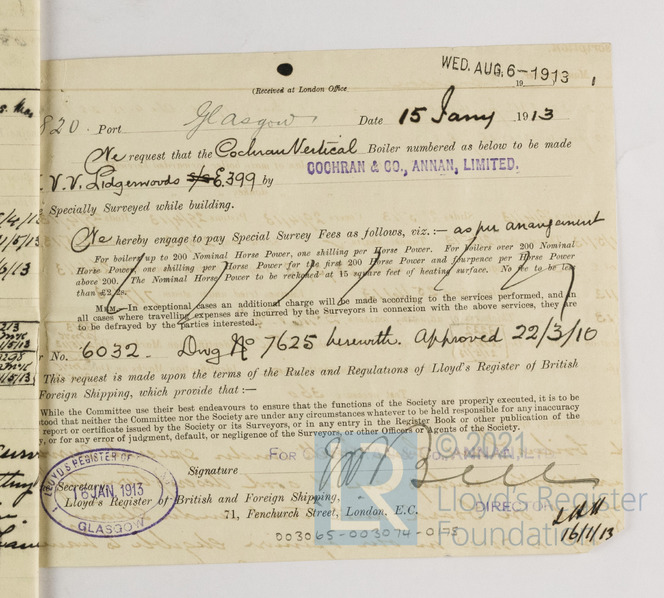 WED. AUG. 6-1913
(Received at London Office 19
820. Port Glasgow Date 15 Jany 1913
We request that the Cochran Vertical Boiler numbered as below to be made
V. V. Lidgerwoods E.399 by COCHRAN & CO., ANNAN, LIMITED.
Specially Surveyed while building.
We hereby engage to pay Special Survey Fees as follows, viz.:— as per arrangement
For boilers up to 200 Nominal Horse Power, one shilling per Horse Power. For boilers over 200 Nominal
Horse Power, one shilling per Horse Power for the first 200 Horse Power and fourpence per Horse Power
above 200. The Nominal Horse Power to be reckoned at 15 square feet of heating surface. No fee to be less
than £2.2s.
MEM.—In exceptional cases an additional charge will be made according to the services performed, and in
all cases where travelling expenses are incurred by the Surveyors in connexion with the above services, they are
to be defrayed by the parties interested.
r No. 6032. Dwg No 7625 herewith. Approved 22/3/10
This request is made upon the terms of the Rules and Regulations of Lloyd's Register of British
Foreign Shipping, which provide that :—
While the Committee use their best endeavours to ensure that the functions of the Society are properly executed, it is to be
tood that neither the Committee nor the Society are under any circumstances whatever to be held responsible for any inaccuracy
report or certificate issued by the Society or its Surveyors, or in any entry in the Register Book or other publication of the
y, or for any error of judgment, default, or negligence of the Surveyors, or other Officers or Agents of the Society.
FOR ANNAN, LTD
© 2021
Signature
LLOYD'S REGISTER OF
16 JAN. 1913
GLASGOW
Secretary
Lloyd's Register of British and Foreign Shipping,
71, Fenchurch Street, London. E.C.
DIRECTOR
16/1/13
LR
Lloyd's Register
Foundation
003065-003074-0175